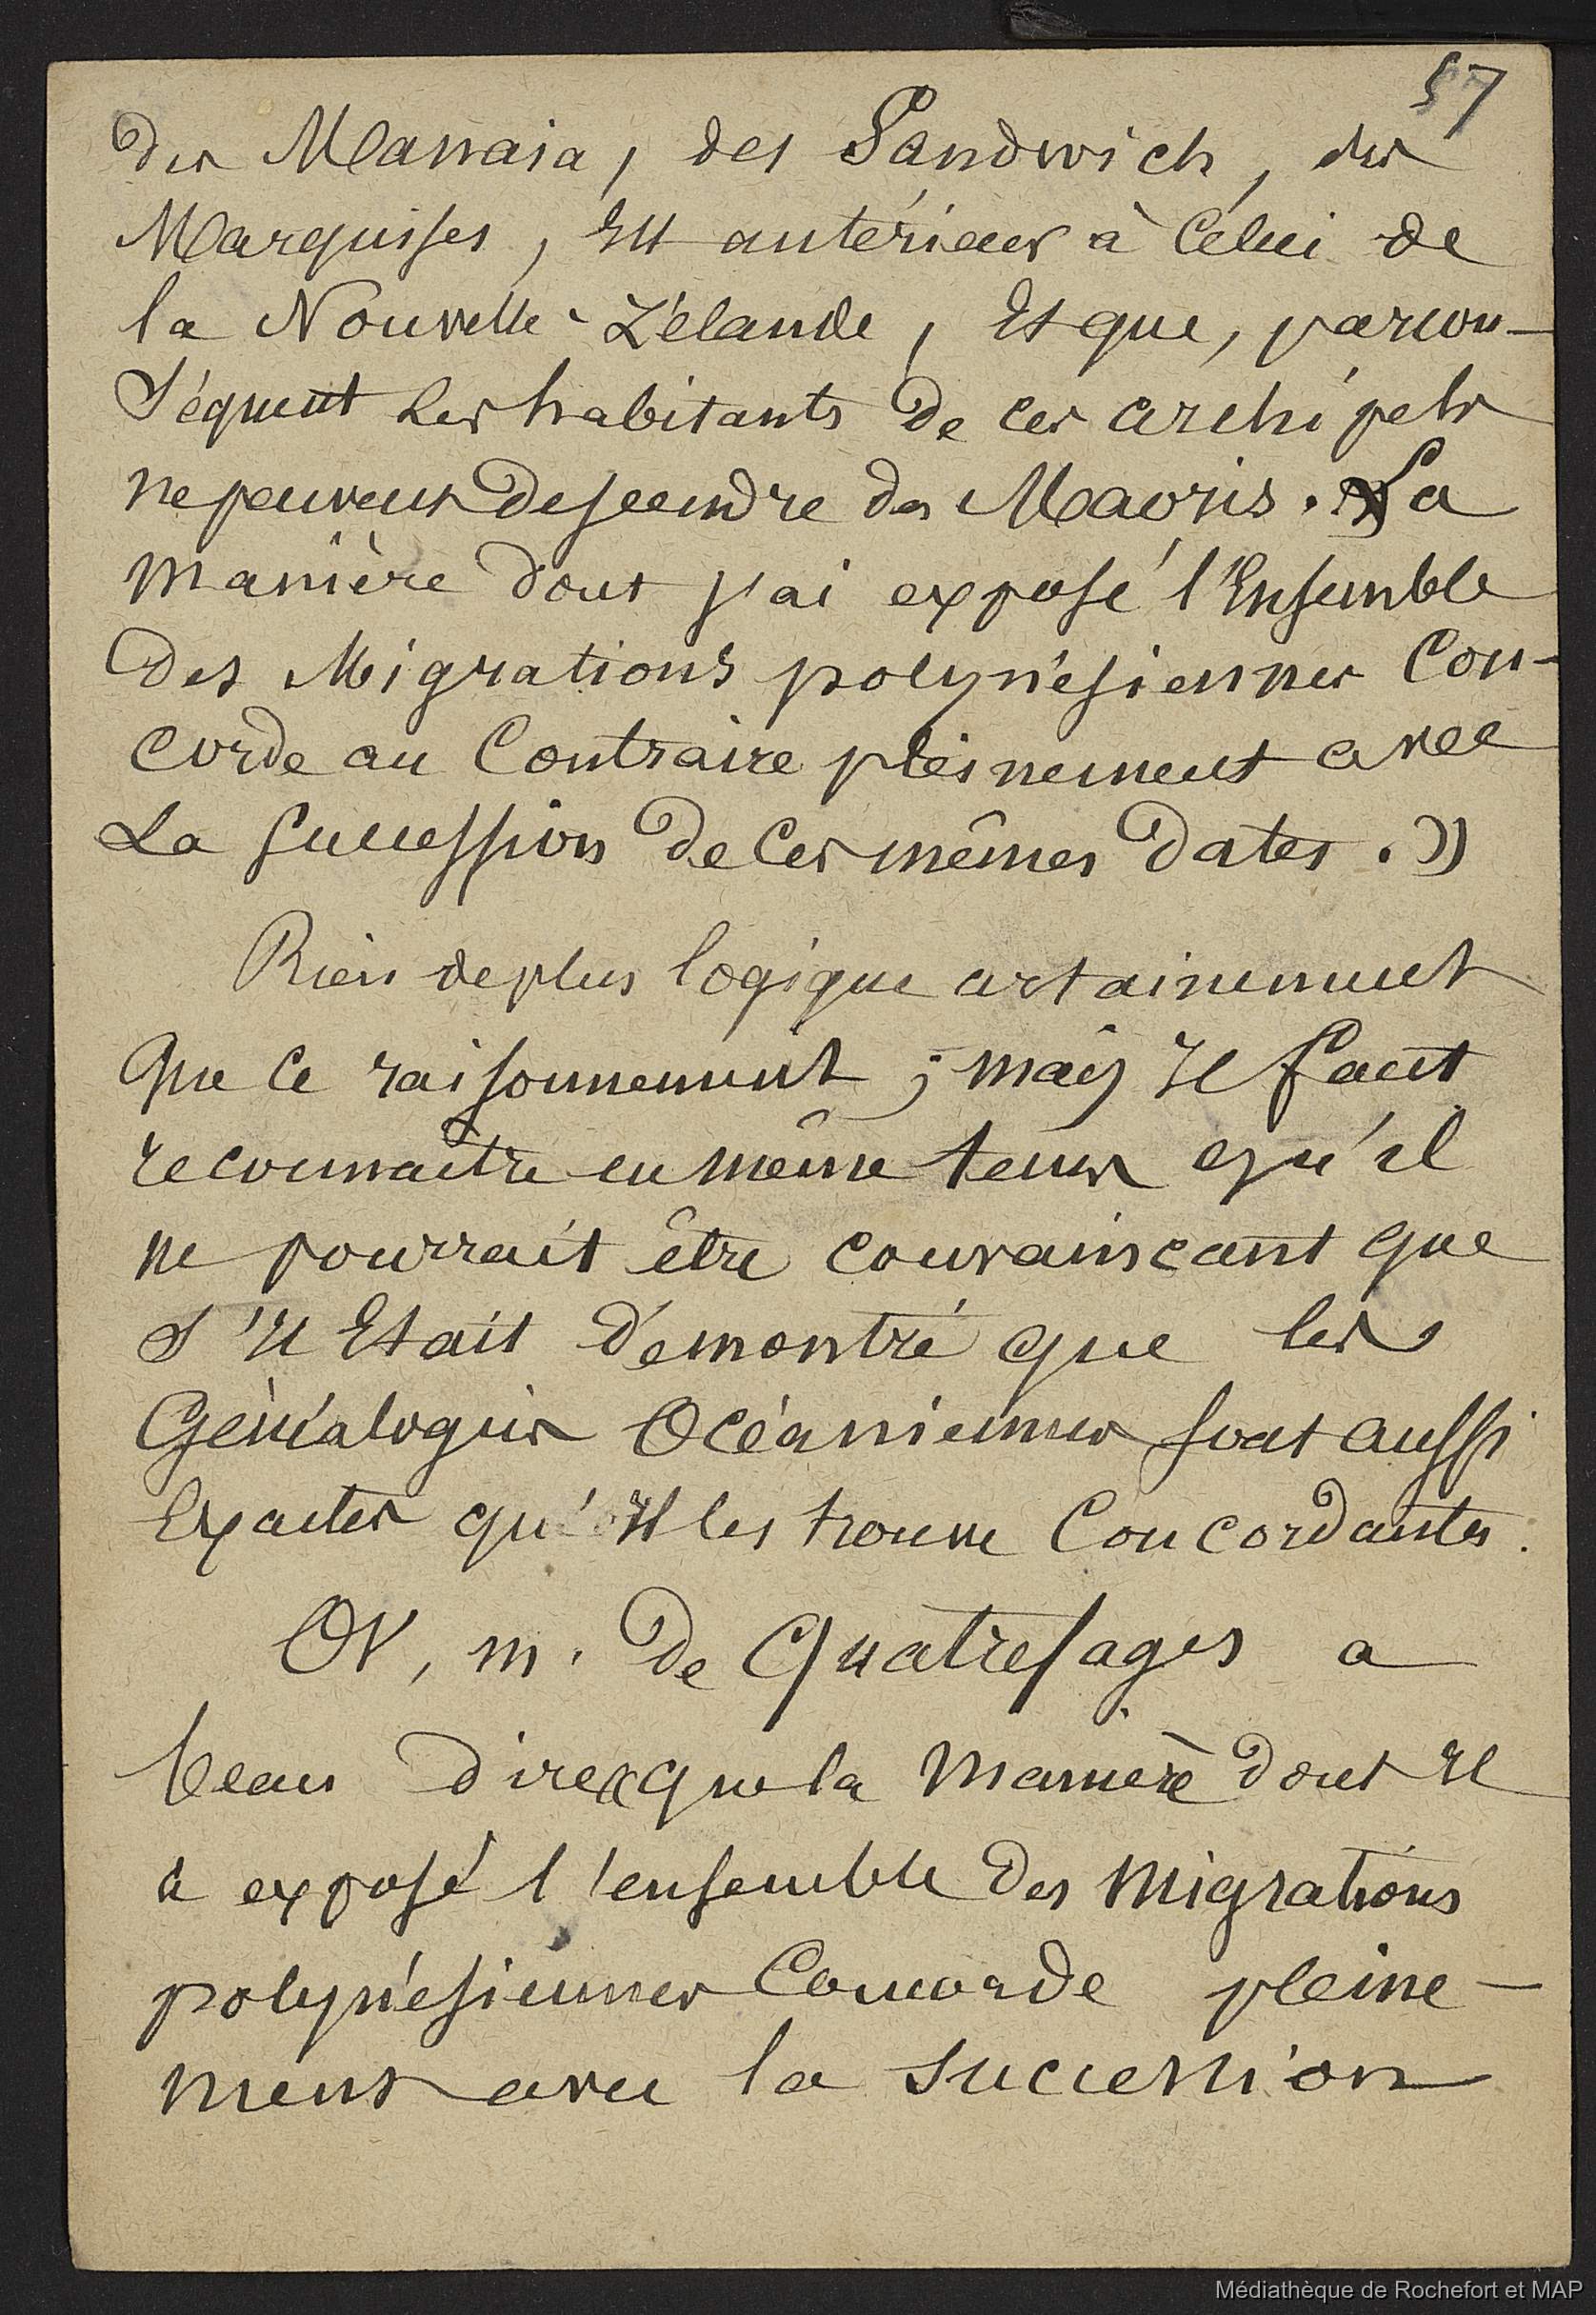 57
des Manaia, des Sandwich, des
Marquises, est antérieur à Célui de
la Nouvelle-Zélande, Et que, par con-
Séquent Les habitants de ces archipels
ne peuvent descendre des Maoris. La
manière dont j'ai exposé l'Ensemble
des Migrations polynésiennes Con-
corde au Contraire pleinement avec
La Succession de Ces mêmes Dates. »
Rien de plus logique certainement
Que Ce raisonnement ; mais Il faut
reconnaître en même tems qu'il
ne pourrait être convainçant que
S'il Etait démontré que les
Généalogies Océaniennes sont aussi
Exactes qu'Il les trouve Concordantes.
Or, m. De Quatrefages a
beau dire « que la Manière dont Il
a exposé l'ensemble des Migrations
polynésiennes Concorde pleine-
ment avec la succession
Médiathèque de Rochefort et MAP